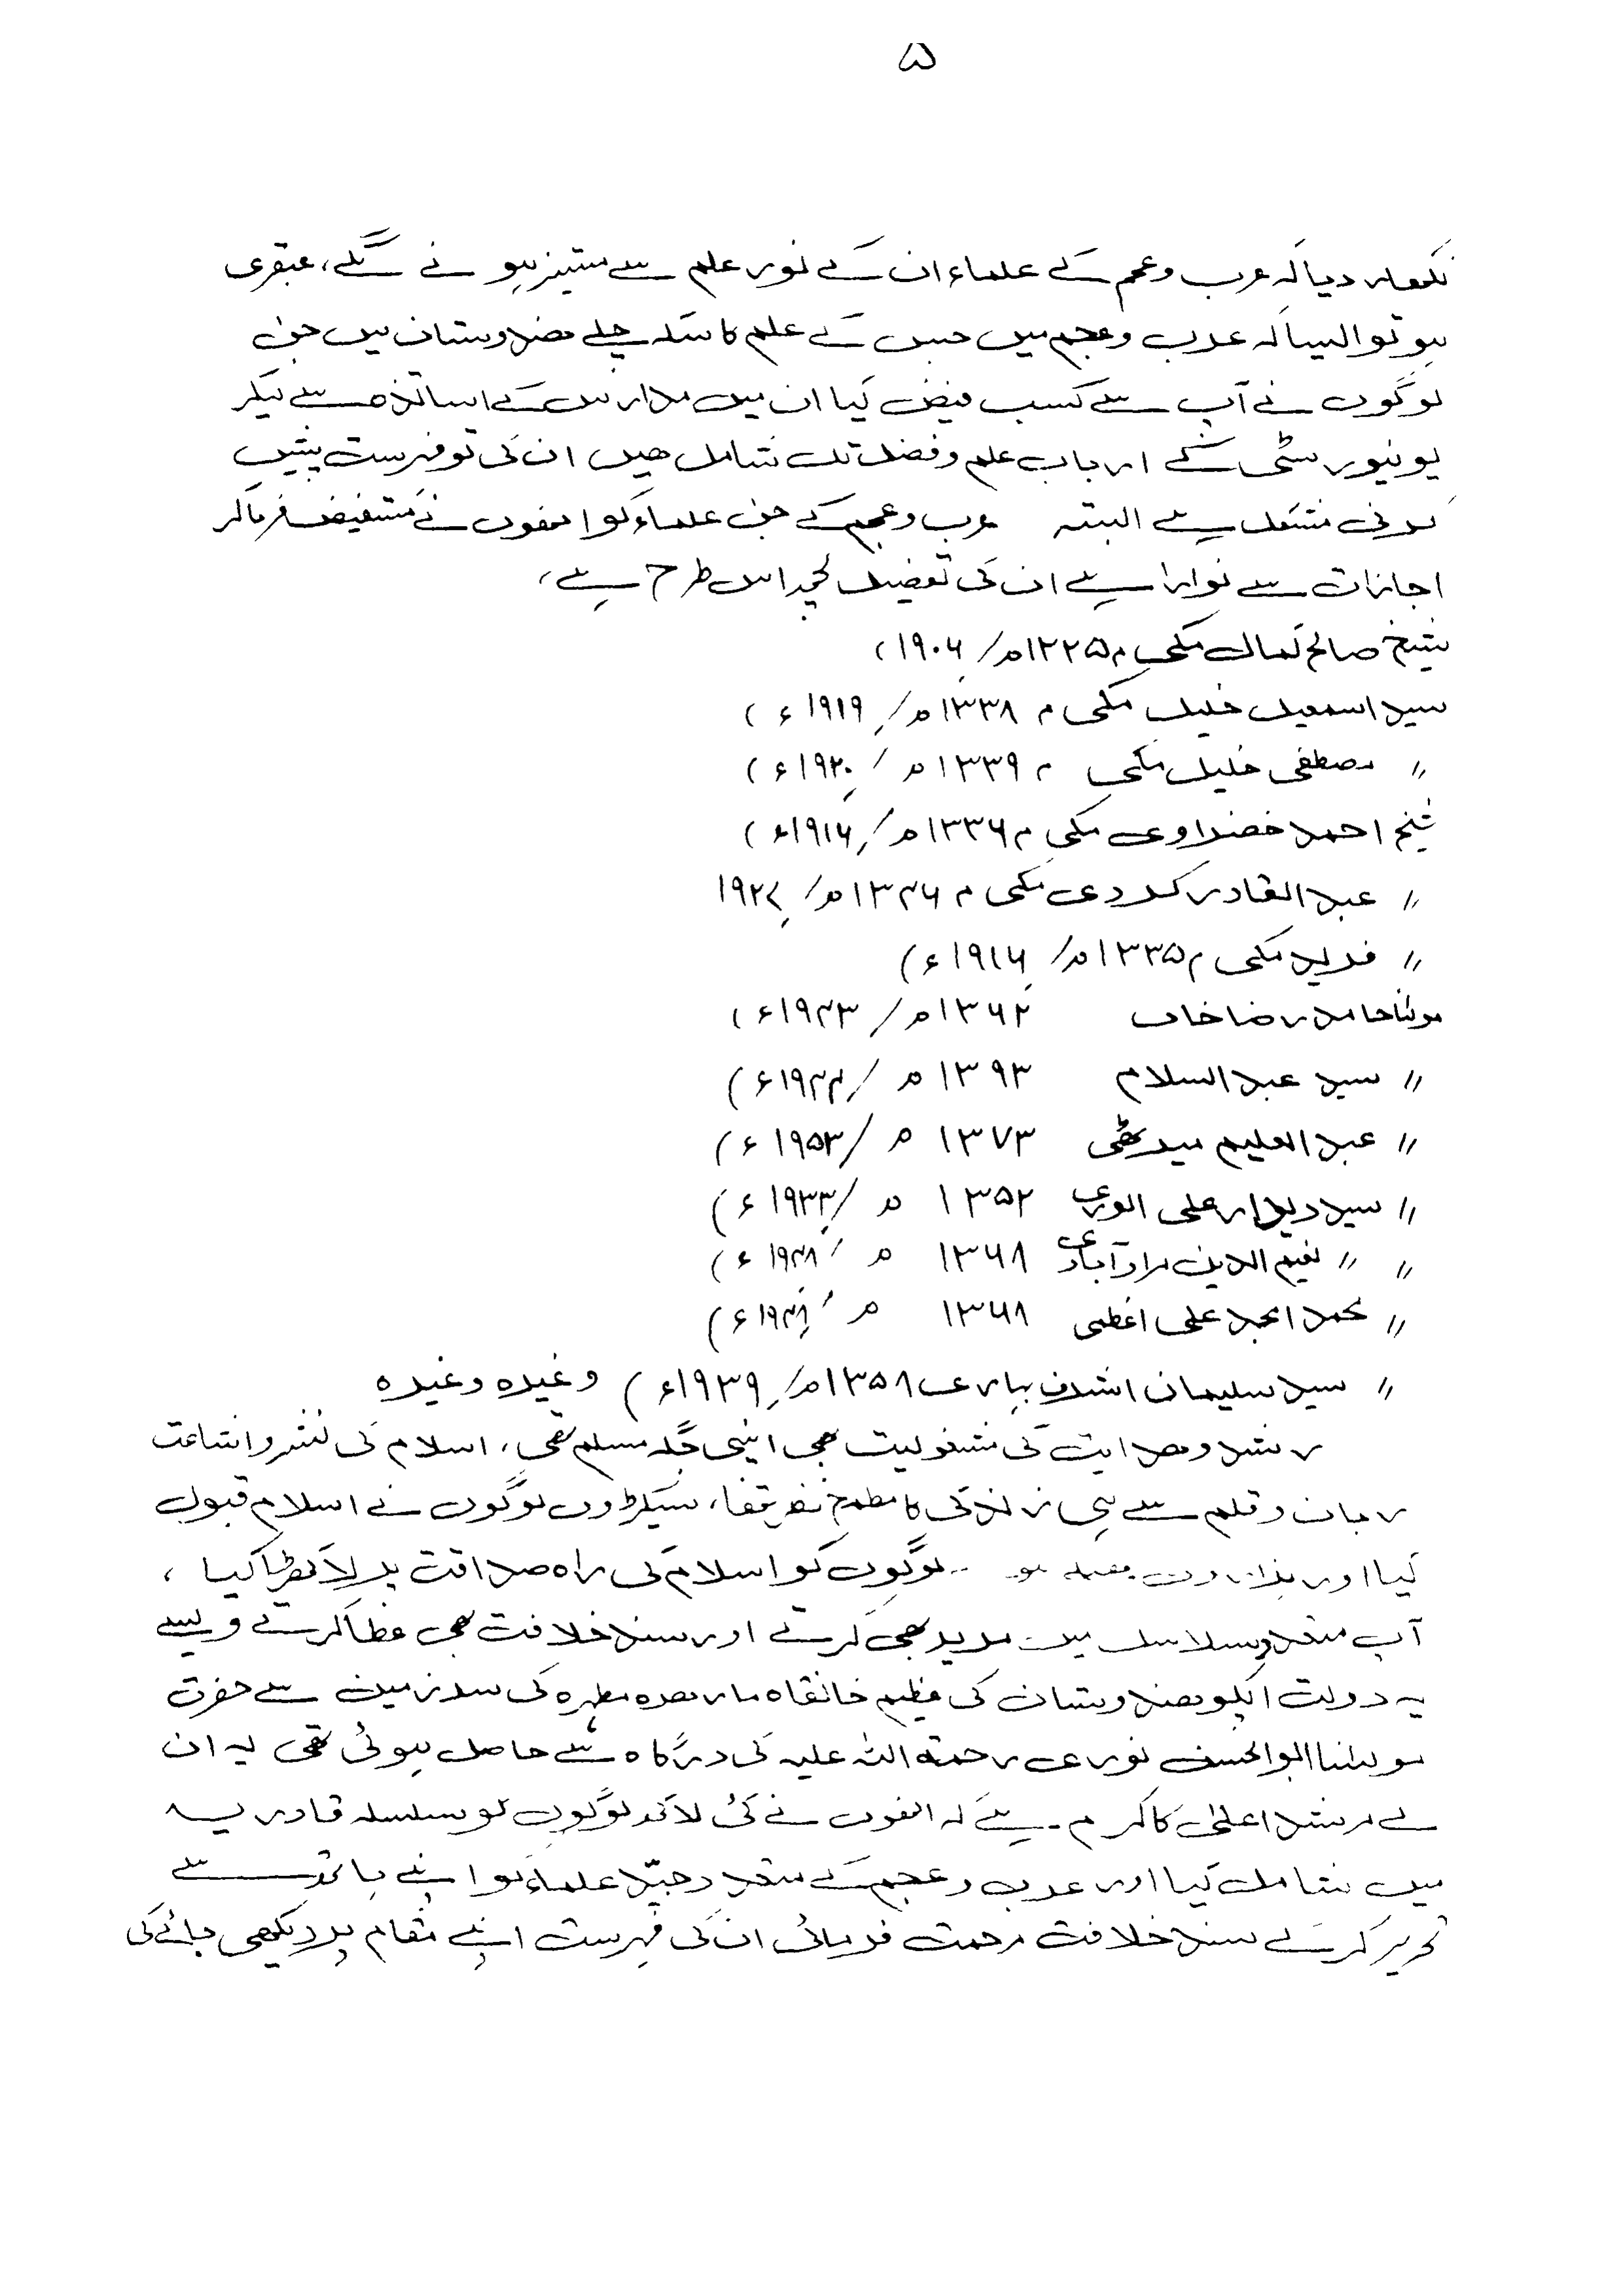 ۵
نکھار دیا کہ عرب و عجم کے علماء ان کے نور علم سے مستنیر ہونے لگے، عبقری
ہو تو ایسا کہ عرب و عجم میں جس کے علم کا سکہ چلے ھندوستان میں جن
لوگوں نے آپ سے کسب فیض کیا ان میں مدارس کے اساتذہ سے لیکر
یونیورسٹی کے ارباب علم و فضل تک شامل ھیں ان کی تو فہرست پیش
کرنی مشکل ہے البتہ عرب و عجم کے جن علماء کو انھوں نے مستفیض فرما کر
اجازات سے نوازا ہے ان کی تفصیل کچھ اس طرح ہے،
شیخ صالح کمال مکی م ۱۳۲۵ھ/ ۱۹۰۶)
سید اسمعیل خلیل مکی م ۱۳۳۸ھ/ ۱۹۱۹ء)
〃 مصطفی خلیل مکی م ۱۳۳۹ھ/ ۱۹۲۰ء)
شیخ احمد خضراوی مکی م ۱۳۳۶ھ/ ۱۹۱۶ء)
〃 عبد القادر کردی مکی م ۱۳۴۶ھ/ ۱۹۲۷
〃 فرید مکی م ۱۳۳۵ھ/ ۱۹۱۶ء)
مولٰنا حامد رضا خاں ۱۳۶۲ھ/ ۱۹۴۳ء)
〃 سید عبد السلام ۱۳۹۳ھ/
〃 عبد العلیم میرٹھی ۱۳۷۳ھ/ ۱۹۵۳ء)
〃 سید دیدار علی الوری ۱۳۵۲ھ/ ۱۹۳۳ء)
〃 〃 نعیم الدین مرادآبادی ۱۳۶۸ھ/ ۱۹۴۸ء)
〃 محمد امجد علی اعظمی ۱۳۶۸ھ/ ۱۹۴۸ء)
〃 سید سلیمان اشرف بہاری ۱۳۵۸ھ/ ۱۹۳۹ء) وغیرہ وغیرہ
رشد و ھدایت کی مشغولیت بھی اپنی جگہ مسلم تھی، اسلام کی نشر و اشاعت
زبان و قلم سے ہی زندگی کا مطمح نظر تھا، سیکڑوں لوگوں نے اسلام قبول
کیا اور ہزاروں لوگوں کو اسلام کی راہ صداقت پر لا کھڑا کیا،
آپ متعدد سلاسل میں مرید بھی کرتے اور سند خلافت بھی عطا کرتے ویسے
یہ دولت آپکو ھندوستان کی عظیم خانقاہ مارھرہ مطہرہ کی سرزمین سے حضرت
مولٰنا ابوالحسن نوری رحمة اللہ علیہ کی درگاہ سے حاصل ہوئی تھی یہ ان
کے مرشد اعلیٰ کا کرم ہے کہ انھوں نے کئی لاکھ لوگوں کو سلسلہ قادریہ
میں شامل کیا اور عرب و عجم کے متعدد جیّد علماء کو اپنے ہاتھ سے
تحریر کر کے سند خلافت مرحمت فرمائی ان کی فہرست اپنے مقام پر دیکھی جائے گی